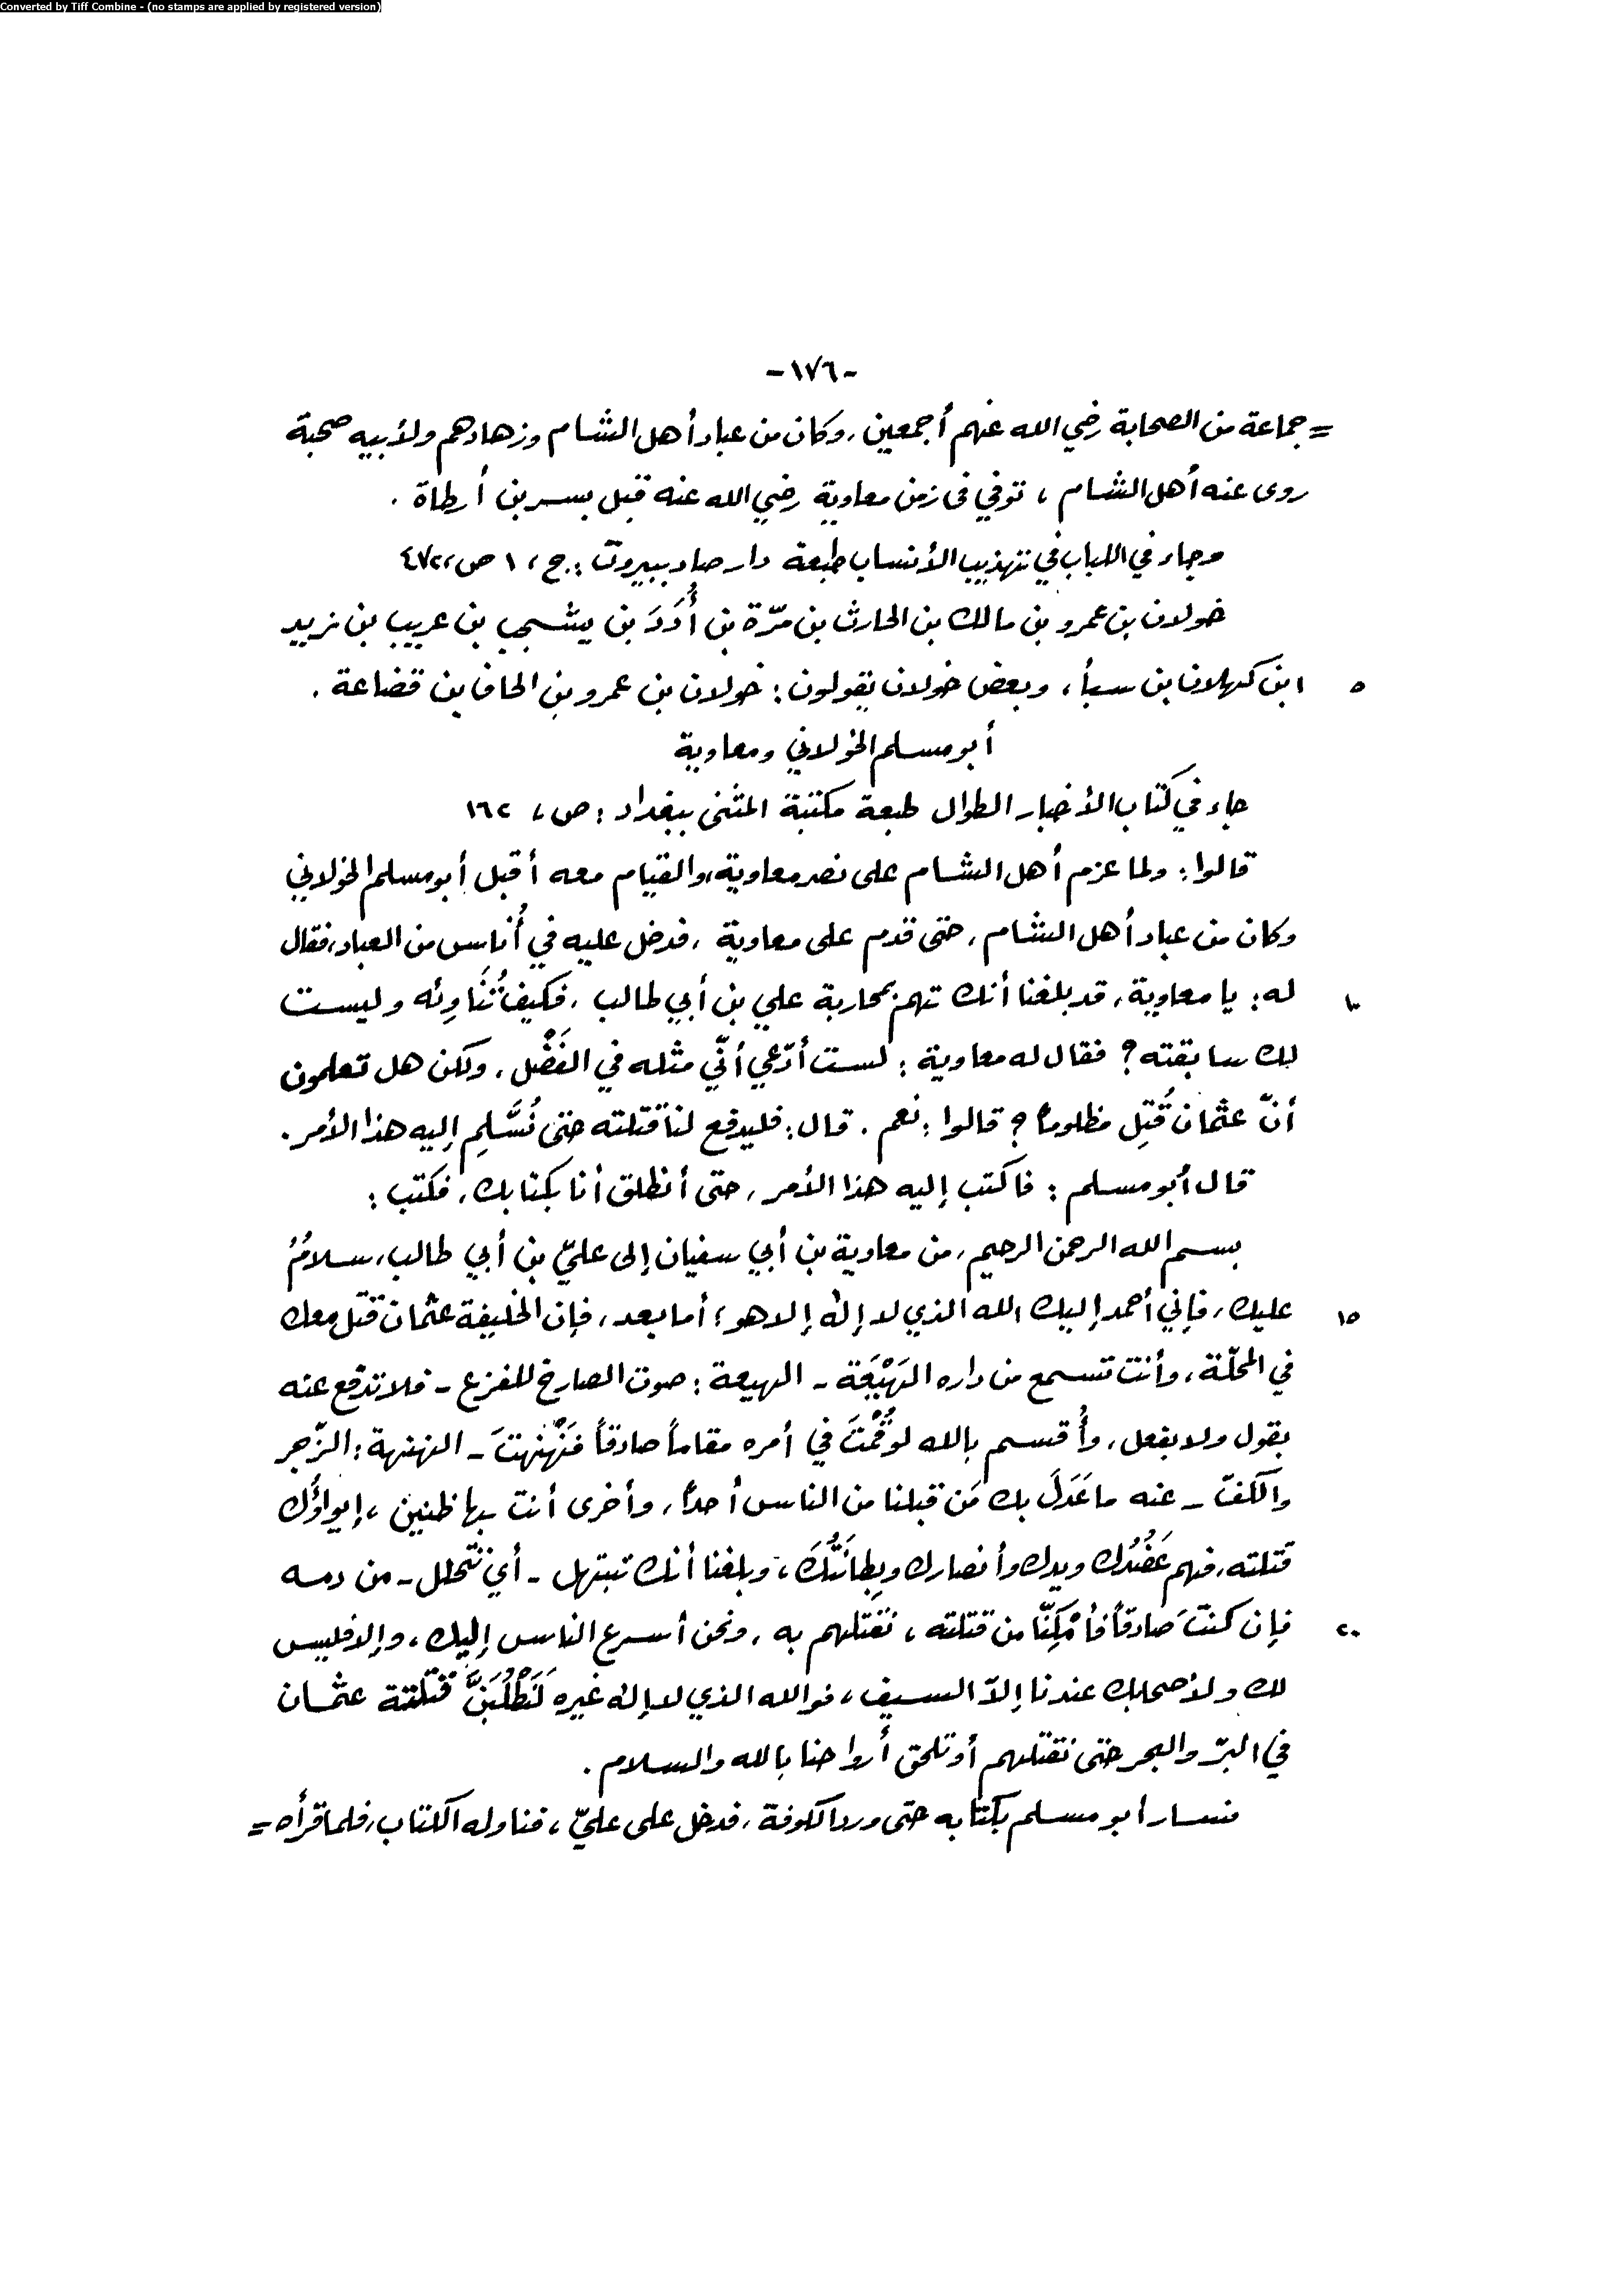 Converted by Tiff Combine - (no stamps are applied by registered version)
-١٧٦-
= جماعة من الصحابة رضي الله عنهم أجمعين، وكان من عباد أهل الشام وزهادهم ولأبيه صحبة
روى عنه أهل الشام، توفي فى زمن معاوية رضي الله عنه قبل بسر بن أرطاة.
وجاء في اللباب في تهذيب الأنساب طبعة دار صادر ببيروت: ج، ١ ص، ٤٧٢
خولان بن عمرو بن مالك بن الحارث بن مرّة بن أُدَدَ بن يشجب بن عريب بن زيد
٥ ابن كهلان بن سبأ، وبعض خولان يقولون: خولان بن عمرو بن الحاف بن قضاعة.
أبو مسلم الخولاني ومعاوية
جاء في كتاب الأخبار الطوال طبعة مكتبة المثنى ببغداد: ص، ١٦٢
قالوا: ولما عزم أهل الشام على نصر معاوية، والقيام معه أقبل أبو مسلم الخولاني
وكان من عباد أهل الشام، حتى قدم على معاوية، فدخل عليه في أُناس من العباد، فقال
١٠ له: يا معاوية، قد بلغنا أنك تهم بمحاربة علي بن أبي طالب، فكيف تُنَاوِئه وليست
لك سابقته؟ فقال له معاوية: لست أدّعي أنّي مثله في الفَضْل، ولكن هل تعلمون
أنّ عثمان قُتِل مظلوماً؟ قالوا: نعم. قال: فليدفع لنا قتلته حتى نُسَلِّم إليه هذا الأمر.
قال أبو مسلم: فاكتب إليه هذا الأمر، حتى أنطلق أنا بكتابك، فكتب:
بسم الله الرحمن الرحيم، من معاوية بن أبي سفيان إلى عليّ بن أبي طالب، سلامٌ
١٥ عليك، فإني أحمد إليك الله الذي لا إله إلا هو؛ أما بعد، فإن الخليفة عثمان قتل معك
في المحلّة، وأنت تسمع من داره الهَيْعَة - الهيعة: صوت الصارخ للفزع - فلا تدفع عنه
بقول ولا بفعل، وأُقسم بالله لو قُمْتَ في أمره مقاماً صادقاً فَنَهْنَهتَ - النهنهة: الزّجر
والكفّ - عنه ما عَدَلَ بك مَن قبلنا من الناس أحداً، وأخرى أنت بها ظنين، إيواؤُك
قتلته، فهم عَضُدُك ويدك وأنصارك وبِطانَتُكَ، وبلغنا أنك تبتهل - أي تتحلل - من دمه
٢٠ فإن كنتَ صادقاً فأمْكِنّا من قتلته، نقتلهم به، ونحن أسرع الناس إليك، وإلا فليس
لك ولأصحابك عندنا إلاّ السيف، فوالله الذي لا إله غيره لَنَطْلُبَنَّ قتلة عثمان
في البرّ والبحر حتى نقتلهم أو تلحق أرواحنا بالله والسلام.
فسار أبو مسلم بكتابه حتى ورد الكوفة، فدخل على عليّ، فناوله الكتاب، فلما قرأه =